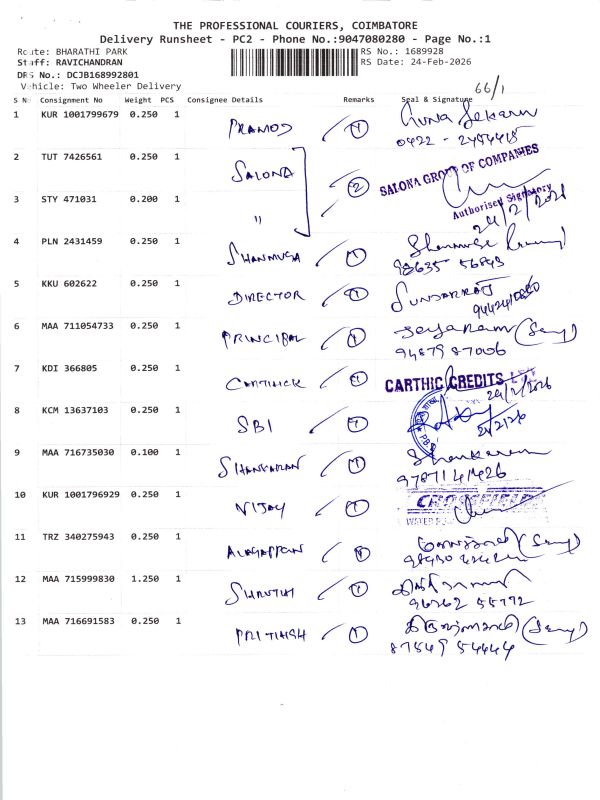 THE PROFESSIONAL COURIERS, COIMBATORE
Delivery Runsheet - PC2 - Phone No.:9047080280 - Page No.:1
Route: BHARATHI PARK RS No.: 1689928
Staff: RAVICHANDRAN RS Date: 24-Feb-2026
DRS No.: DCJB168992801
Vehicle: Two Wheeler Delivery
66/1
S No Consignment No Weight PCS Consignee Details Remarks Seal & Signature
1 KUR 1001799679 0.250 1 PRAMOD 1 Guna Sekaran
0422 - 2494415
2 TUT 7426561 0.250 1 SALONA 2 SALONA GROUP OF COMPANIES
3 STY 471031 0.200 1 " Authorised Signatory
24/2/2026
4 PLN 2431459 0.250 1 SHANMUGA 1
98635 56843
5 KKU 602622 0.250 1 DIRECTOR 1 SUNDARRAJ
6 MAA 711054733 0.250 1 PRINCIPAL 1 Jeyaram (Secy)
94879 87006
7 KDI 366805 0.250 1 CARTHICK 1 CARTHIC CREDITS
24/2/2026
8 KCM 13637103 0.250 1 SBI 1
24/2/26
9 MAA 716735030 0.100 1 SHANKARAN 1 Shankaran
9787141426
10 KUR 1001796929 0.250 1 VIJAY 1 CROSSFIELDS
11 TRZ 340275943 0.250 1 ALAGAPPAN 1
12 MAA 715999830 1.250 1 SHRUTHI 1
96262 55772
13 MAA 716691583 0.250 1 PRITHISH 1
87549 54444